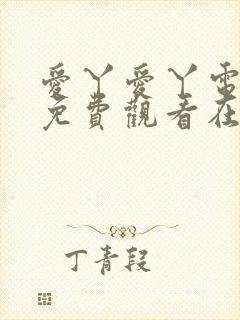 愛丫愛丫電
免費觀看在
丁青段